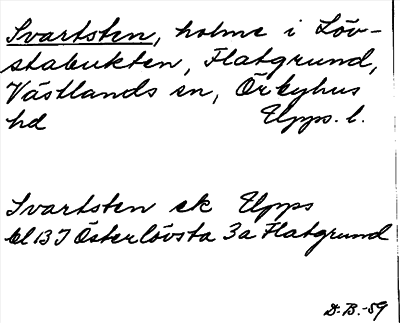 Svartsten, holme i Löv-
stabukten, Flatgrund,
Västlands sn, Örbyhus
hd Upps. l.
Svartsten ek Upps
bl 13 I Österlövsta 3a Flatgrund
D.B.-59